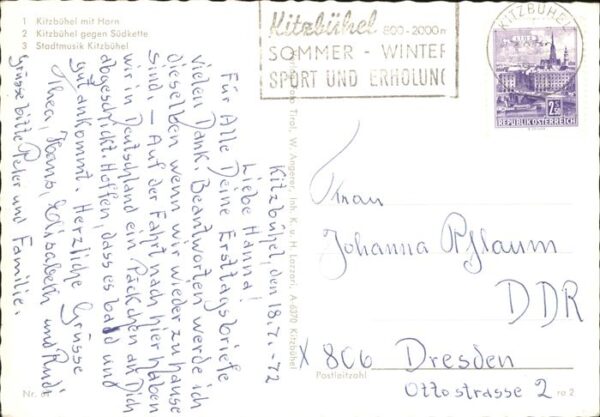 1 Kitzbühel mit Horn
2 Kitzbühel gegen Südkette
3 Stadtmusik Kitzbühel
Kitzbühel 800-2000m
SOMMER - WINTER
SPORT UND ERHOLUNG
KITZBÜHEL
2.50
REPUBLIK ÖSTERREICH
Kitzbühel, den 18.7.-72
Liebe Hanna!
Für Alle Deine Ersttagsbriefe
vielen Dank. Beantworten werde ich
dieselben wenn wir wieder zuhause
sind. – Auf der Fahrt nach hier haben
wir in Deutschland ein Päckchen an Dich
abgeschickt. Hoffen, dass es bald und
gut ankommt. Herzliche Grüsse
Thea, Hans, Elisabeth und Rudi
Grüsse bitte Peter und Familie.
Tirol, W. Angerer, Inh. K. u. H. Lazzari, A-6370 Kitzbühel
Frau
Johanna Pflaum
DDR
X 806 Dresden
Postleitzahl
Ottostrasse 2
Nr.